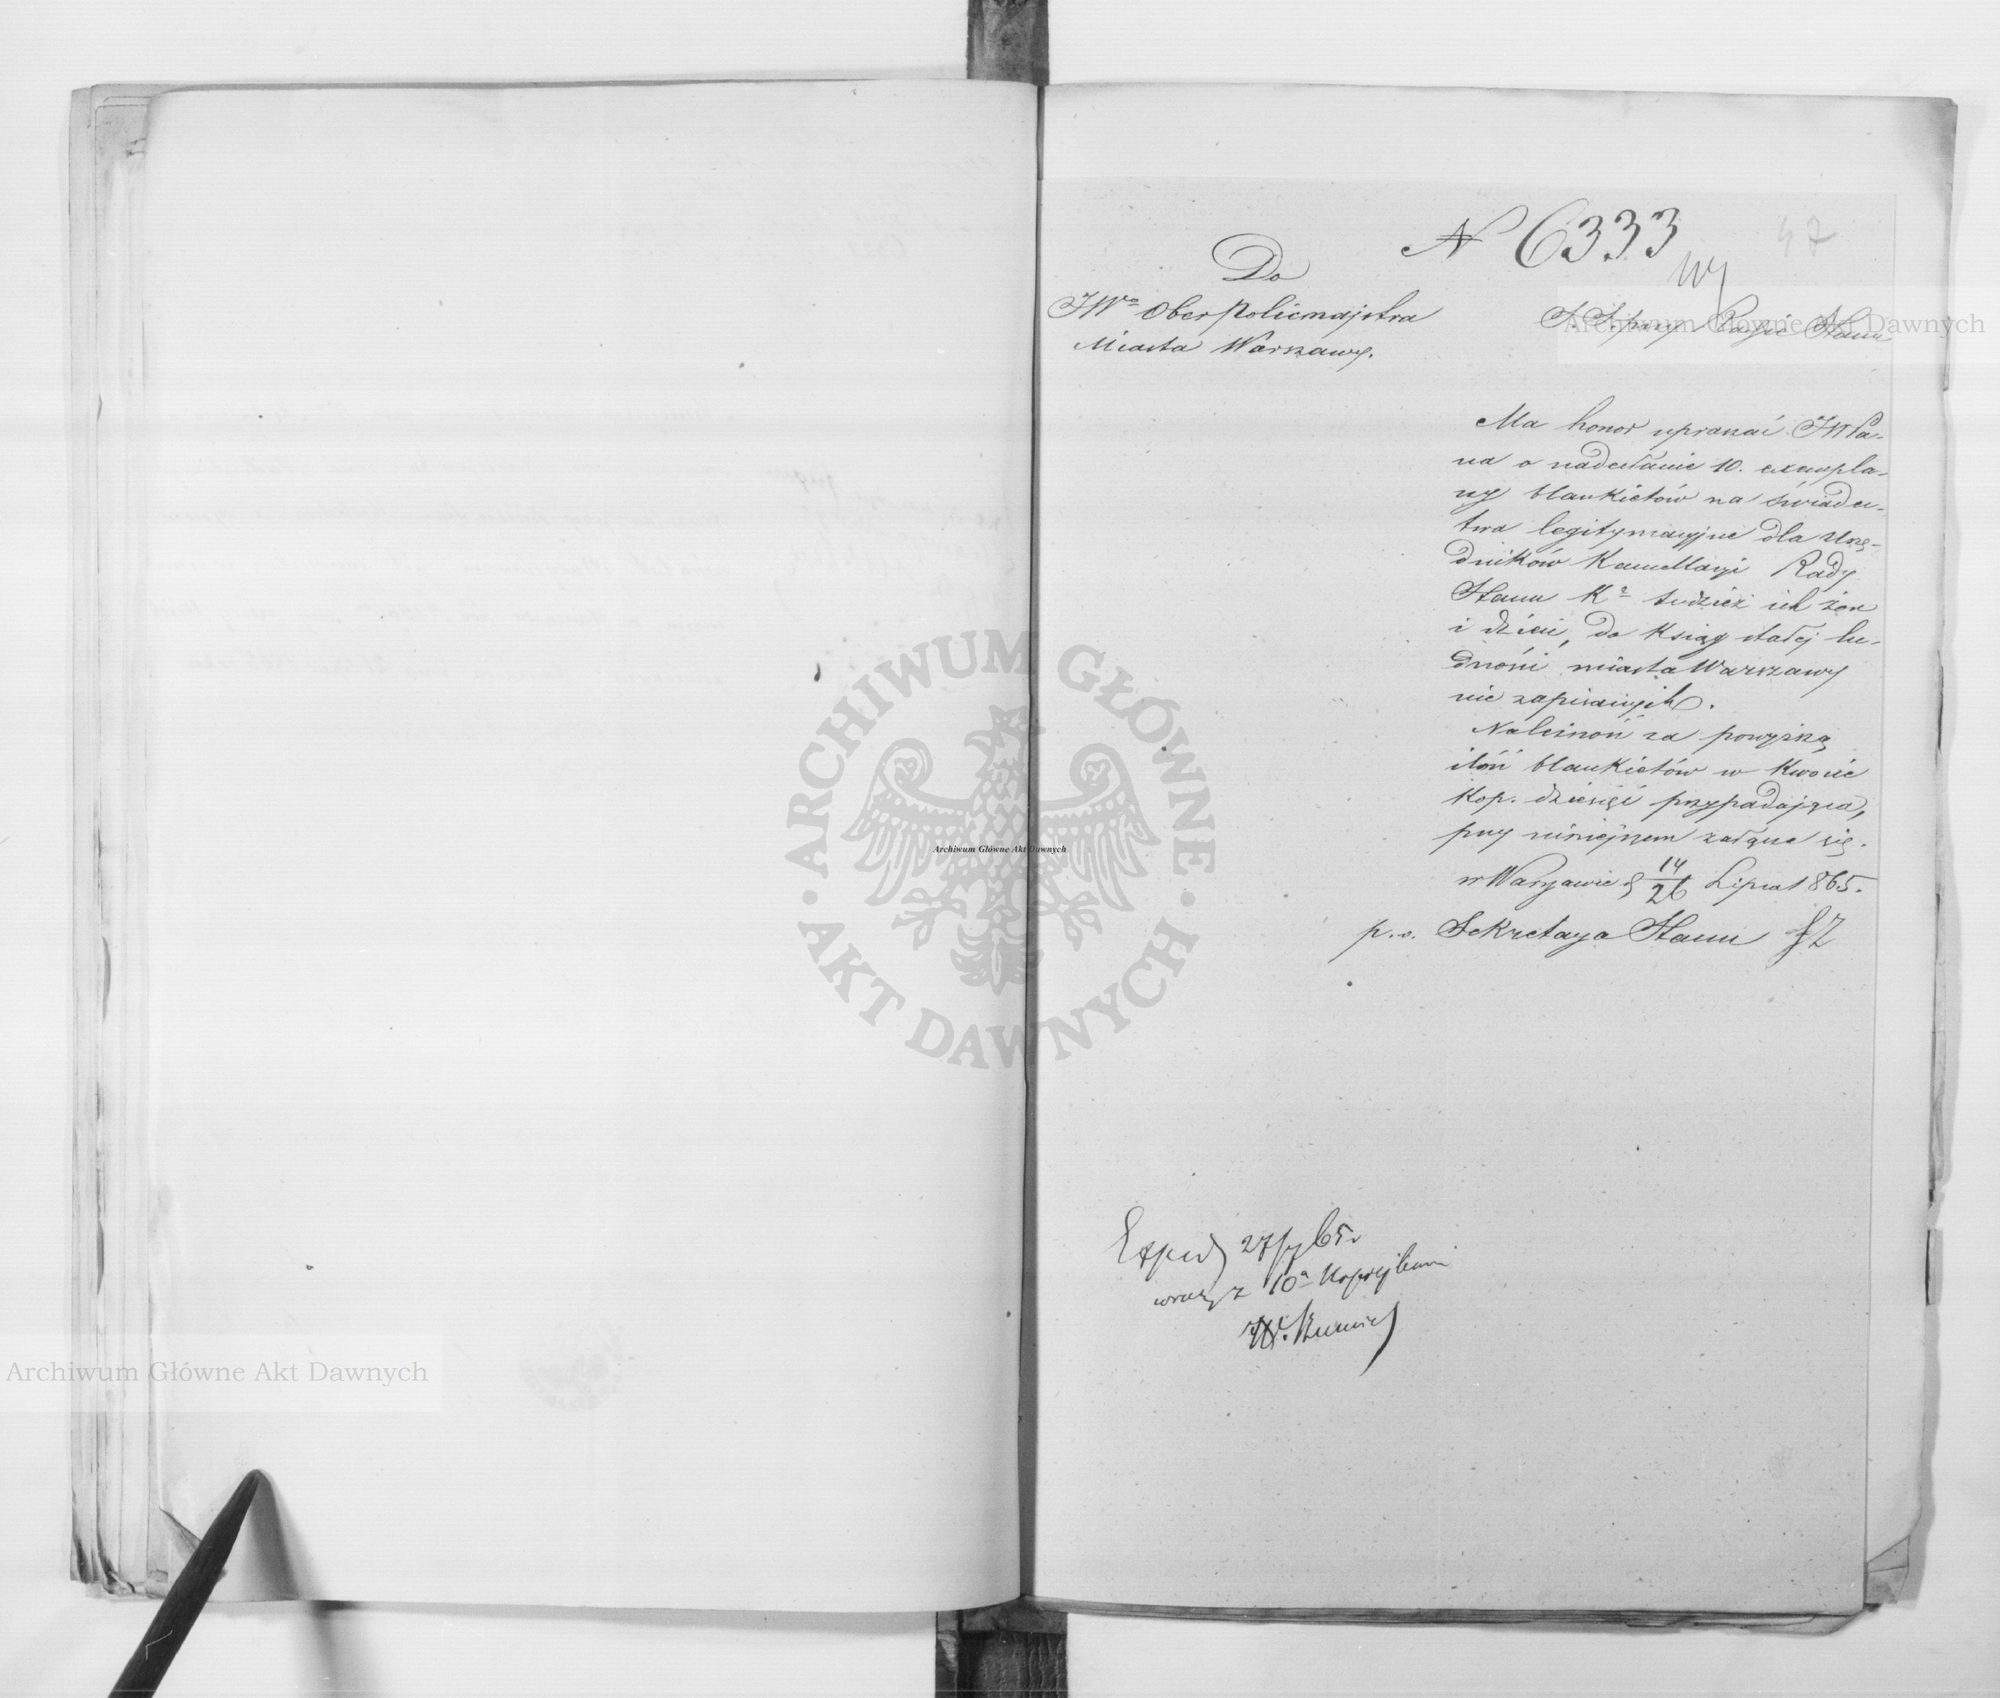 N 6333
47
Do
JWo Oberpolicmajstra
Miasta Warszawy.
Radzie Stanu
Ma honor upraszać JWPa-
na o nadesłanie 10. exempla-
rzy blankietów na świadec-
twa legitymacyjne dla Urzę-
dników Kancellaryi Rady
Stanu Ka tudzież ich żon
i dzieci, do Ksiąg stałej lu-
dności miasta Warszawy
nie zapisanych.
Należność za powyższą
ilość blankietów w kwocie
kop. dziesięć przypadająca,
przy niniejszem załącza się.
w Warszawie d 14/26 Lipca 1865.
p.o. Sekretarza Stanu
Exped 27/7 65r
wraz z 10a Kopiejkami
Archiwum Główne Akt Dawnych
Archiwum Główne Akt Dawnych
Archiwum Główne Akt Dawnych
ARCHIWUM GŁÓWNE AKT DAWNYCH